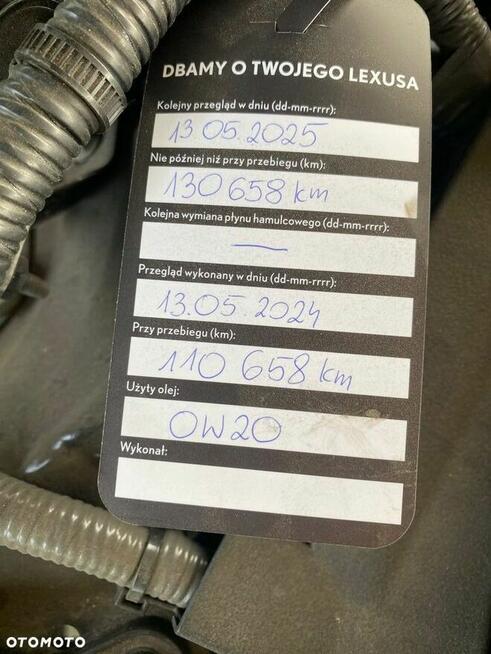 DBAMY O TWOJEGO LEXUSA
Kolejny przegląd w dniu (dd-mm-rrrr):
13 05.2025
Nie później niż przy przebiegu (km):
130 658 km
Kolejna wymiana płynu hamulcowego (dd-mm-rrrr):
—
Przegląd wykonany w dniu (dd-mm-rrrr):
13.05.2024
Przy przebiegu (km):
110 658 km
Użyty olej:
0W20
Wykonał:
OTOMOTO